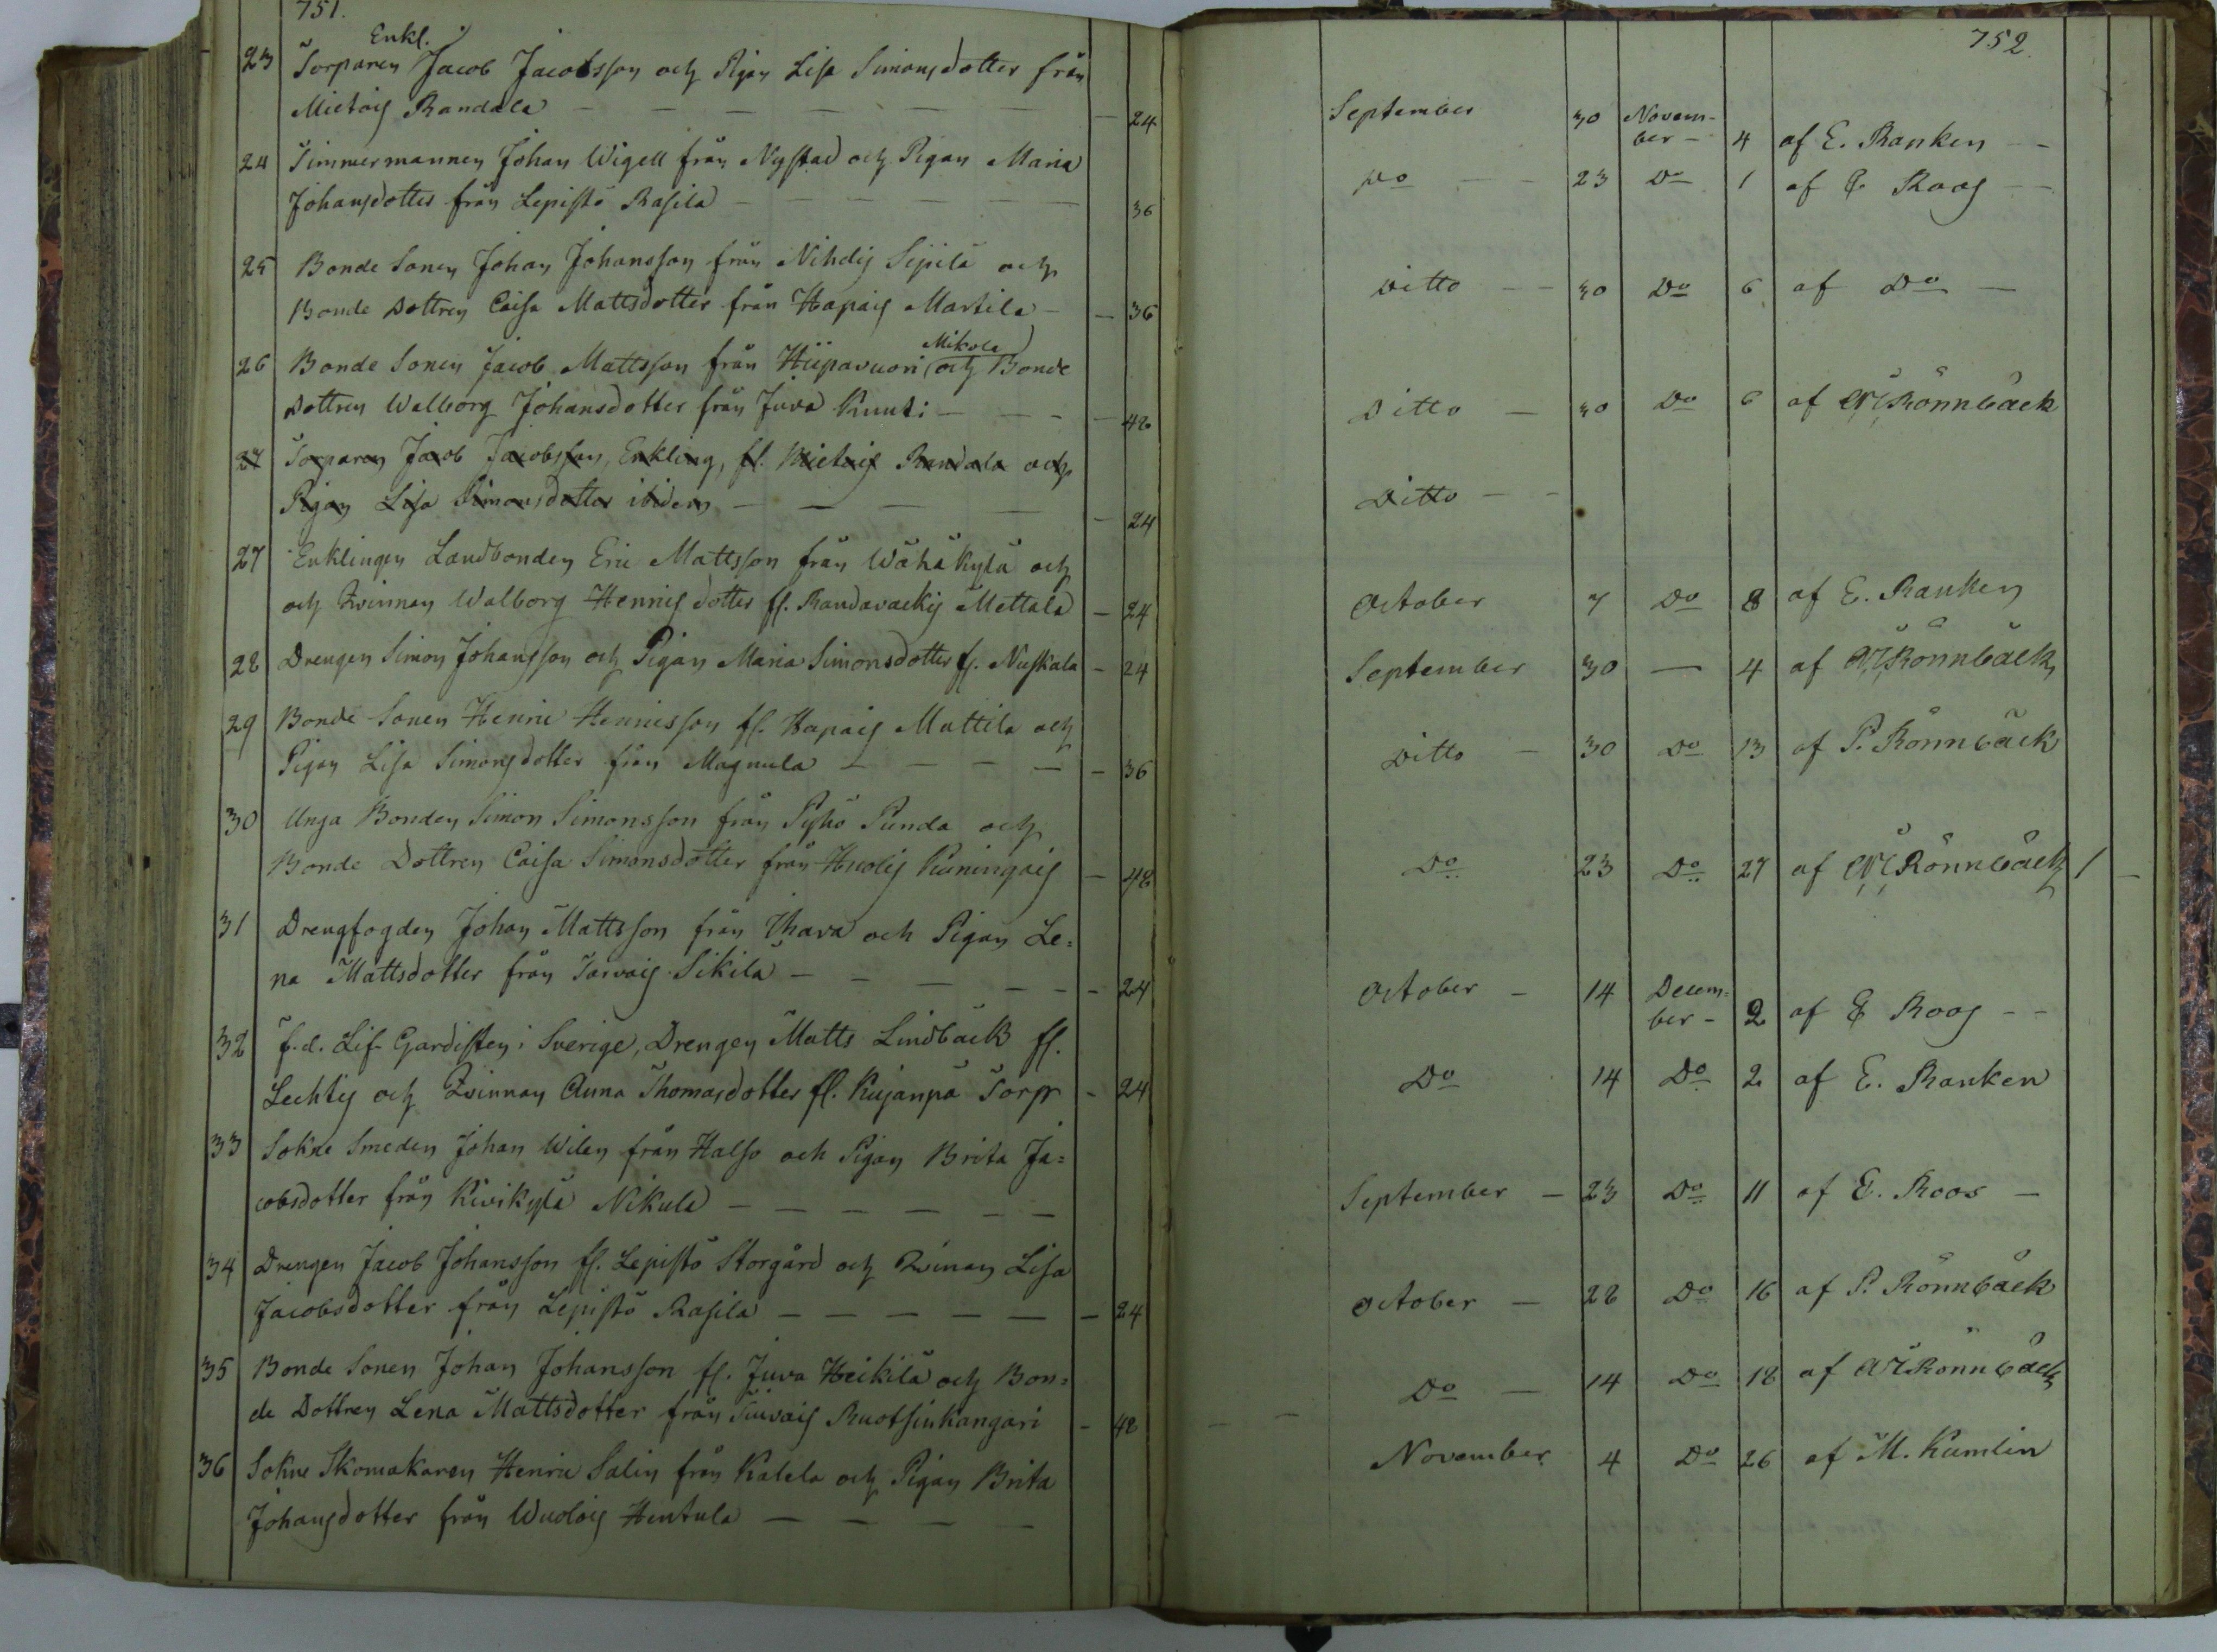 751.
Enkl.
23 Torparen Jacob Jacobsson och Pigan Lisa Simonsdotter från
Mietois Randala — — — — — — 24
24 Timmermannen Johan Wigell från Nystad och Pigan Maria
Johansdotter från Lepistö Rasila — — — — — — 36
25 Bonde Sonen Johan Johansson från Nihdis Sipilä och
Bonde Dottren Caisa Mattsdotter från Hapais Martila — — 36
Mikola
26 Bonde Sonen Jacob Mattsson från Hiipavuori och Bonde
Dottren Walborg Johansdotter från Juva Knuti — — — — 48
27 Torparen Jacob Jacobsson, Enkling, fl. Mietois Randala och
Pigan Lisa Simonsdotter ibidem — — — — — 24
27 Enklingen Landbonden Eric Mattsson från Wähäkylä och
och Qvinnan Walborg Henricsdotter fl. Raudavackis Mettälä — 24
28 Drengen Simon Johansson och Pigan Maria Simonsdotter fl. Nuskala — 24
29 Bonde Sonen Henric Henricsson fl. Hapais Mattila och
Pigan Lisa Simonsdotter från Magnula — — — — — 36
30 Unga Bonden Simon Simonsson från Pyhö Punda och
Bonde Dottren Caisa Simonsdotter från Huolis Kuningais — 48
31 Drengfogden Johan Mattsson från Ihava och Pigan Le=
na Mattsdotter från Tarvais Sikilä — — — — — — 24
32 f.d. Lif Gardisten i Sverige, Drengen Matts Lindbäck fl.
Lechtis och Qvinnan Anna Thomasdotter fl. Kujanpä Torp — 24
33 Sokne Smeden Johan Wilen från Halso och Pigan Brita Ja=
cobsdotter från Kivikylä Nikula — — — — — —
34 Drengen Jacob Johansson fl. Lepistö Storgård och Qvinan Lisa
Jacobsdotter från Lepistö Rasila — — — — — — 24
35 Bonde Sonen Johan Johansson fl. Juva Heikilä och Bon=
de Dottren Lena Mattsdotter från Tiuvais Ruotsinkangari — 48
36 Sokne Skomakaren Henric Salin från Kalela och Pigan Brita
Johansdotter från Wuolois Hentula — — — —
752.
September 30 Novem-
ber — 4 af E. Ranken — —
Do — — 23 Do 1 af E Roos — —
Ditto — — 30 Do 6 af Do —
Ditto — 30 Do 6 af Rönnbäck
Ditto — —
October 7 Do 8 af E. Ranken
September 30 — 4 af Rönnbäck
Ditto — 30 Do 13 af P. Rönnbäck
Do 23 Do 27 af Rönnbäck 1 —
October — 14 Decem=
ber — 2 af E Roos — —
Do 14 Do 2 af E. Ranken
September — 23 Do 11 af E. Roos —
October — 28 Do 16 af P. Rönnbäck
Do — 14 Do 18 af Rönnbäck
November 4 Do 26 af M. Kumlin